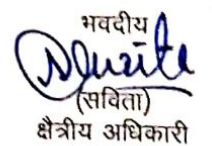 भवदीय
(सविता)
क्षैत्रीय अधिकारी